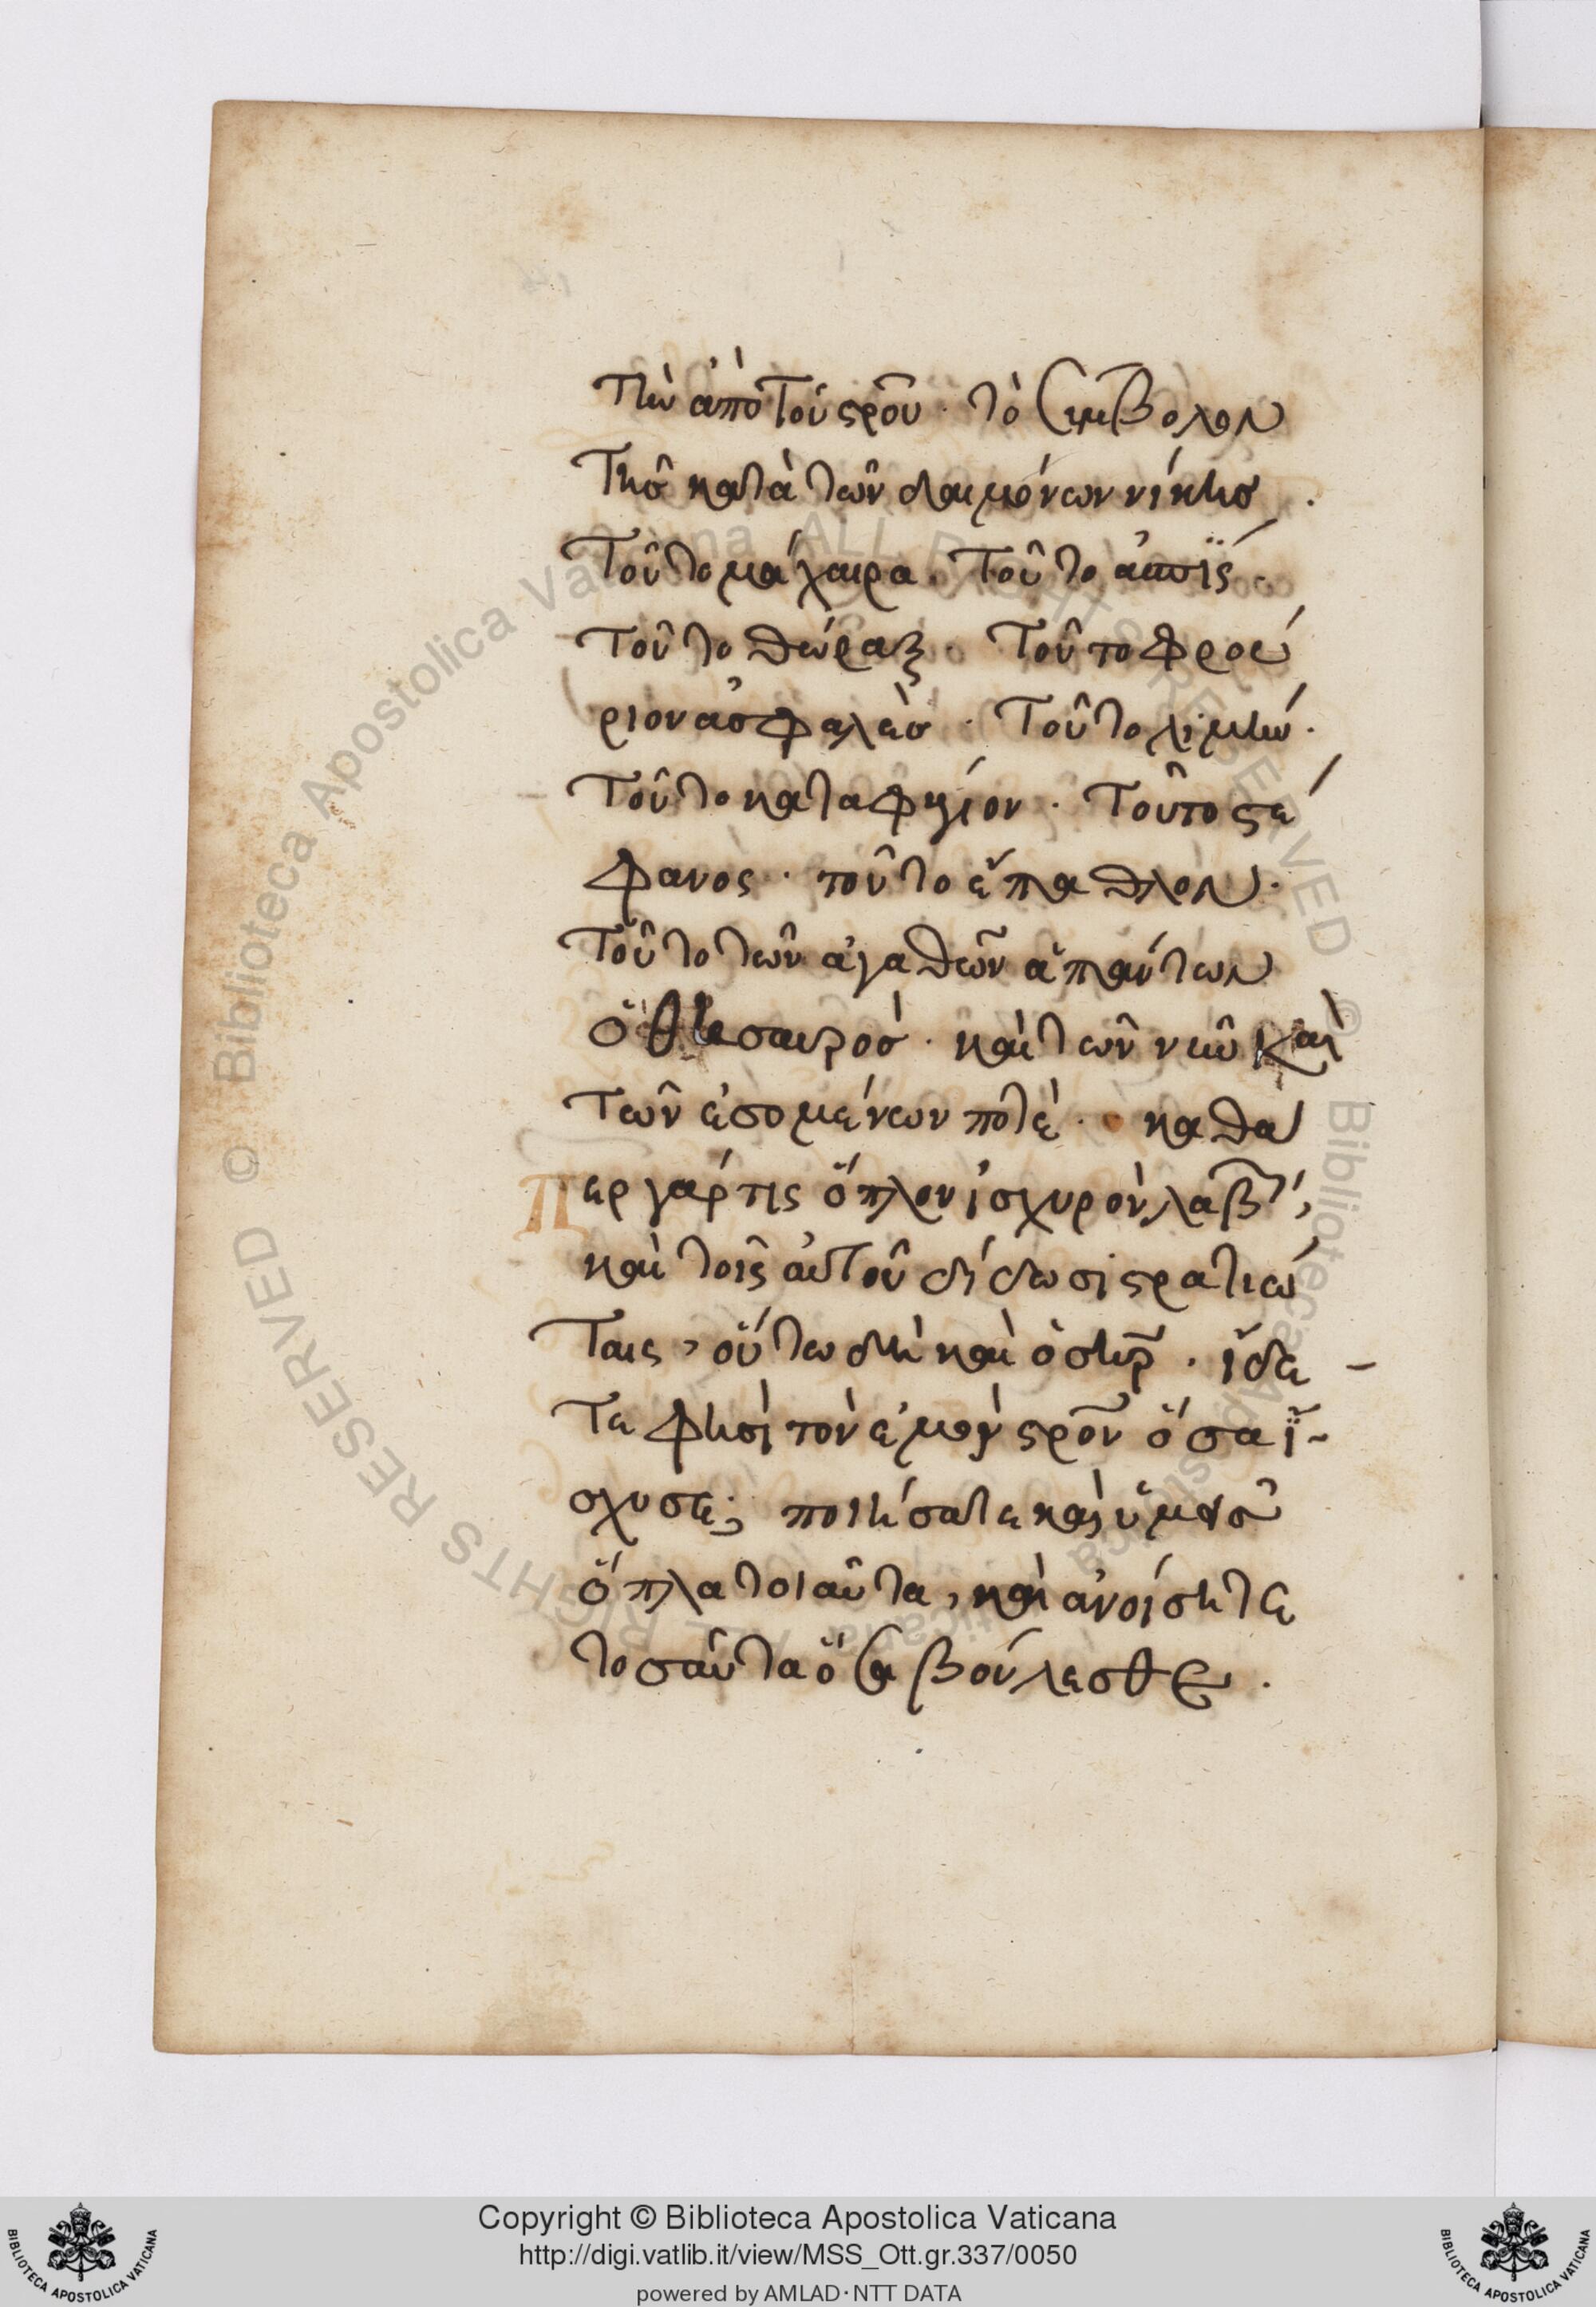 τὴν ἀπὸ τοῦ σρ̅ου · τὸ σύμβολον
τῆς κατὰ τῶν δαιμόνων νίκης ·
τοῦτο μάχαιρα · τοῦτο ἀσπΐς ·
τοῦτο θώραξ · τοῦτο φρού
ριον ἀσφαλὲς · τοῦτο λιμὴν ·
τοῦτο καταφύγιον · τοῦτο στέ
φανος · τοῦτο ἔπαθλον ·
τοῦτο τῶν ἀγαθῶν ἁπάντων
ὁ θησαυρὸς · καὶ τῶν νῦν καὶ
τῶν ἐσομένων ποτὲ · καθά
περ γάρ τις ὅπλον ἰσχυρὸν λαβὼν,
καὶ τοῖς αὐτοῦ δίδωσι στρατιώ
ταις, οὕτω δὴ καὶ ὁ σηρ̅ · ἴδε -
τε φησὶ τὸν ἐμὸν σρ̅ον ὅσα ἴ -
σχυσε; ποιήσατε καὶ ὑμεῖς
ὅπλα τοιαῦτα, καὶ ἀνοίσητε
τοσαῦτα ὅσα βούλεσθε ·
© Biblioteca Apostolica Vaticana ALL RIGHTS RESERVED
© Biblioteca Apostolica Vaticana ALL RIGHTS RESERVED
Copyright © Biblioteca Apostolica Vaticana
http://digi.vatlib.it/view/MSS_Ott.gr.337/0050
powered by AMLAD·NTT DATA
BIBLIOTECA APOSTOLICA VATICANA
BIBLIOTECA APOSTOLICA VATICANA